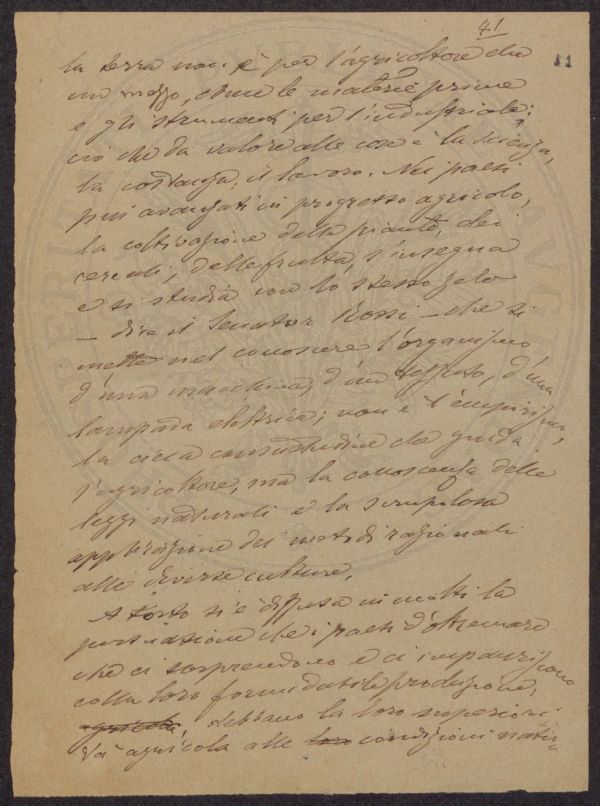 41
11
la terra non è per l'agricoltore che
un mezzo, come le materie prime
e gli strumenti per l'industriale;
ciò che dà valore alle cose è la scienza,
la costanza, il lavoro. Nei paesi
più avanzati in progresso agricolo,
la coltivazione delle piante, dei
cereali, delle frutta, s'insegna
e si studia con lo stesso zelo
— dice il Senator Rossi — che si
mette nel conoscere l'organismo
d'una macchina, d'un tessuto, d'una
lampada elettrica; non è l'empirismo,
la cieca consuetudine che guida
l'agricoltore, ma la conoscenza delle
leggi naturali e la scrupolosa
applicazione dei metodi razionali
alle diverse culture.
A torto si è diffusa in molti la
persuasione che i paesi d'oltremare
che ci sorprendono e ci impauriscono
colla loro formidabile produzione,
agricola, debbano la loro superiori-
tà agricola alle loro condizioni natu-